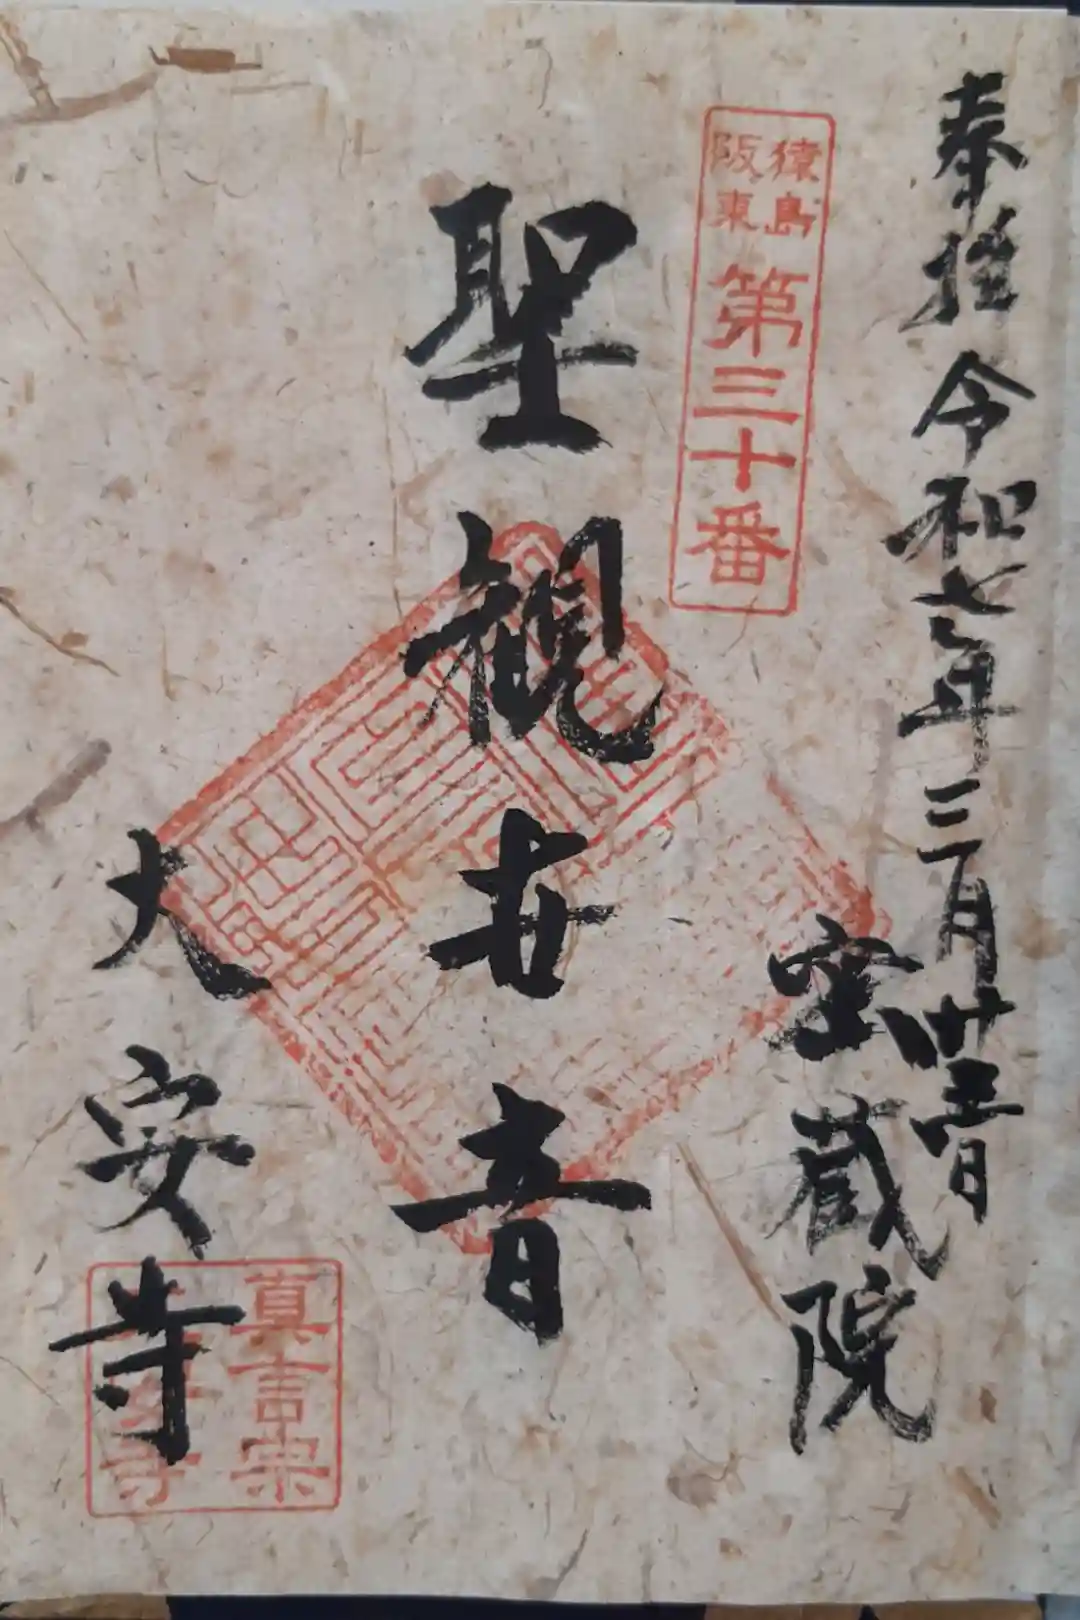 奉拝 令和七年三月卅一日
宝蔵院
猿島
阪東
第三十番
聖観世音
大安寺
真言宗
大安寺